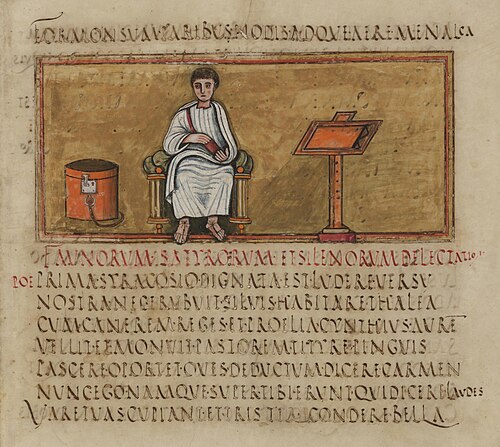 FORMONSVM PARIBVS NODIS ADQVE AERE MENALCA
FAVNORVM SATYRORVM ET SILENORVM DELECTATIO
POE PRIMA SYRACOSIO DIGNATA EST LVDERE VERSV
NOSTRA NEC ERVBVIT SILVIS HABITARE THALEA
CVM CANEREM REGES ET PROELIA CYNTHIVS AVRE
VELLIT ET ADMONVIT PASTOREM TITYRE PINGVIS
PASCERE OPORTET OVES DEDVCTVM DICERE CARMEN
NVNC EGO NAMQVE SVPER TIBI ERVNT QVI DICERE LAVDES
VARE TVAS CVPIANT ET TRISTIA CONDERE BELLA